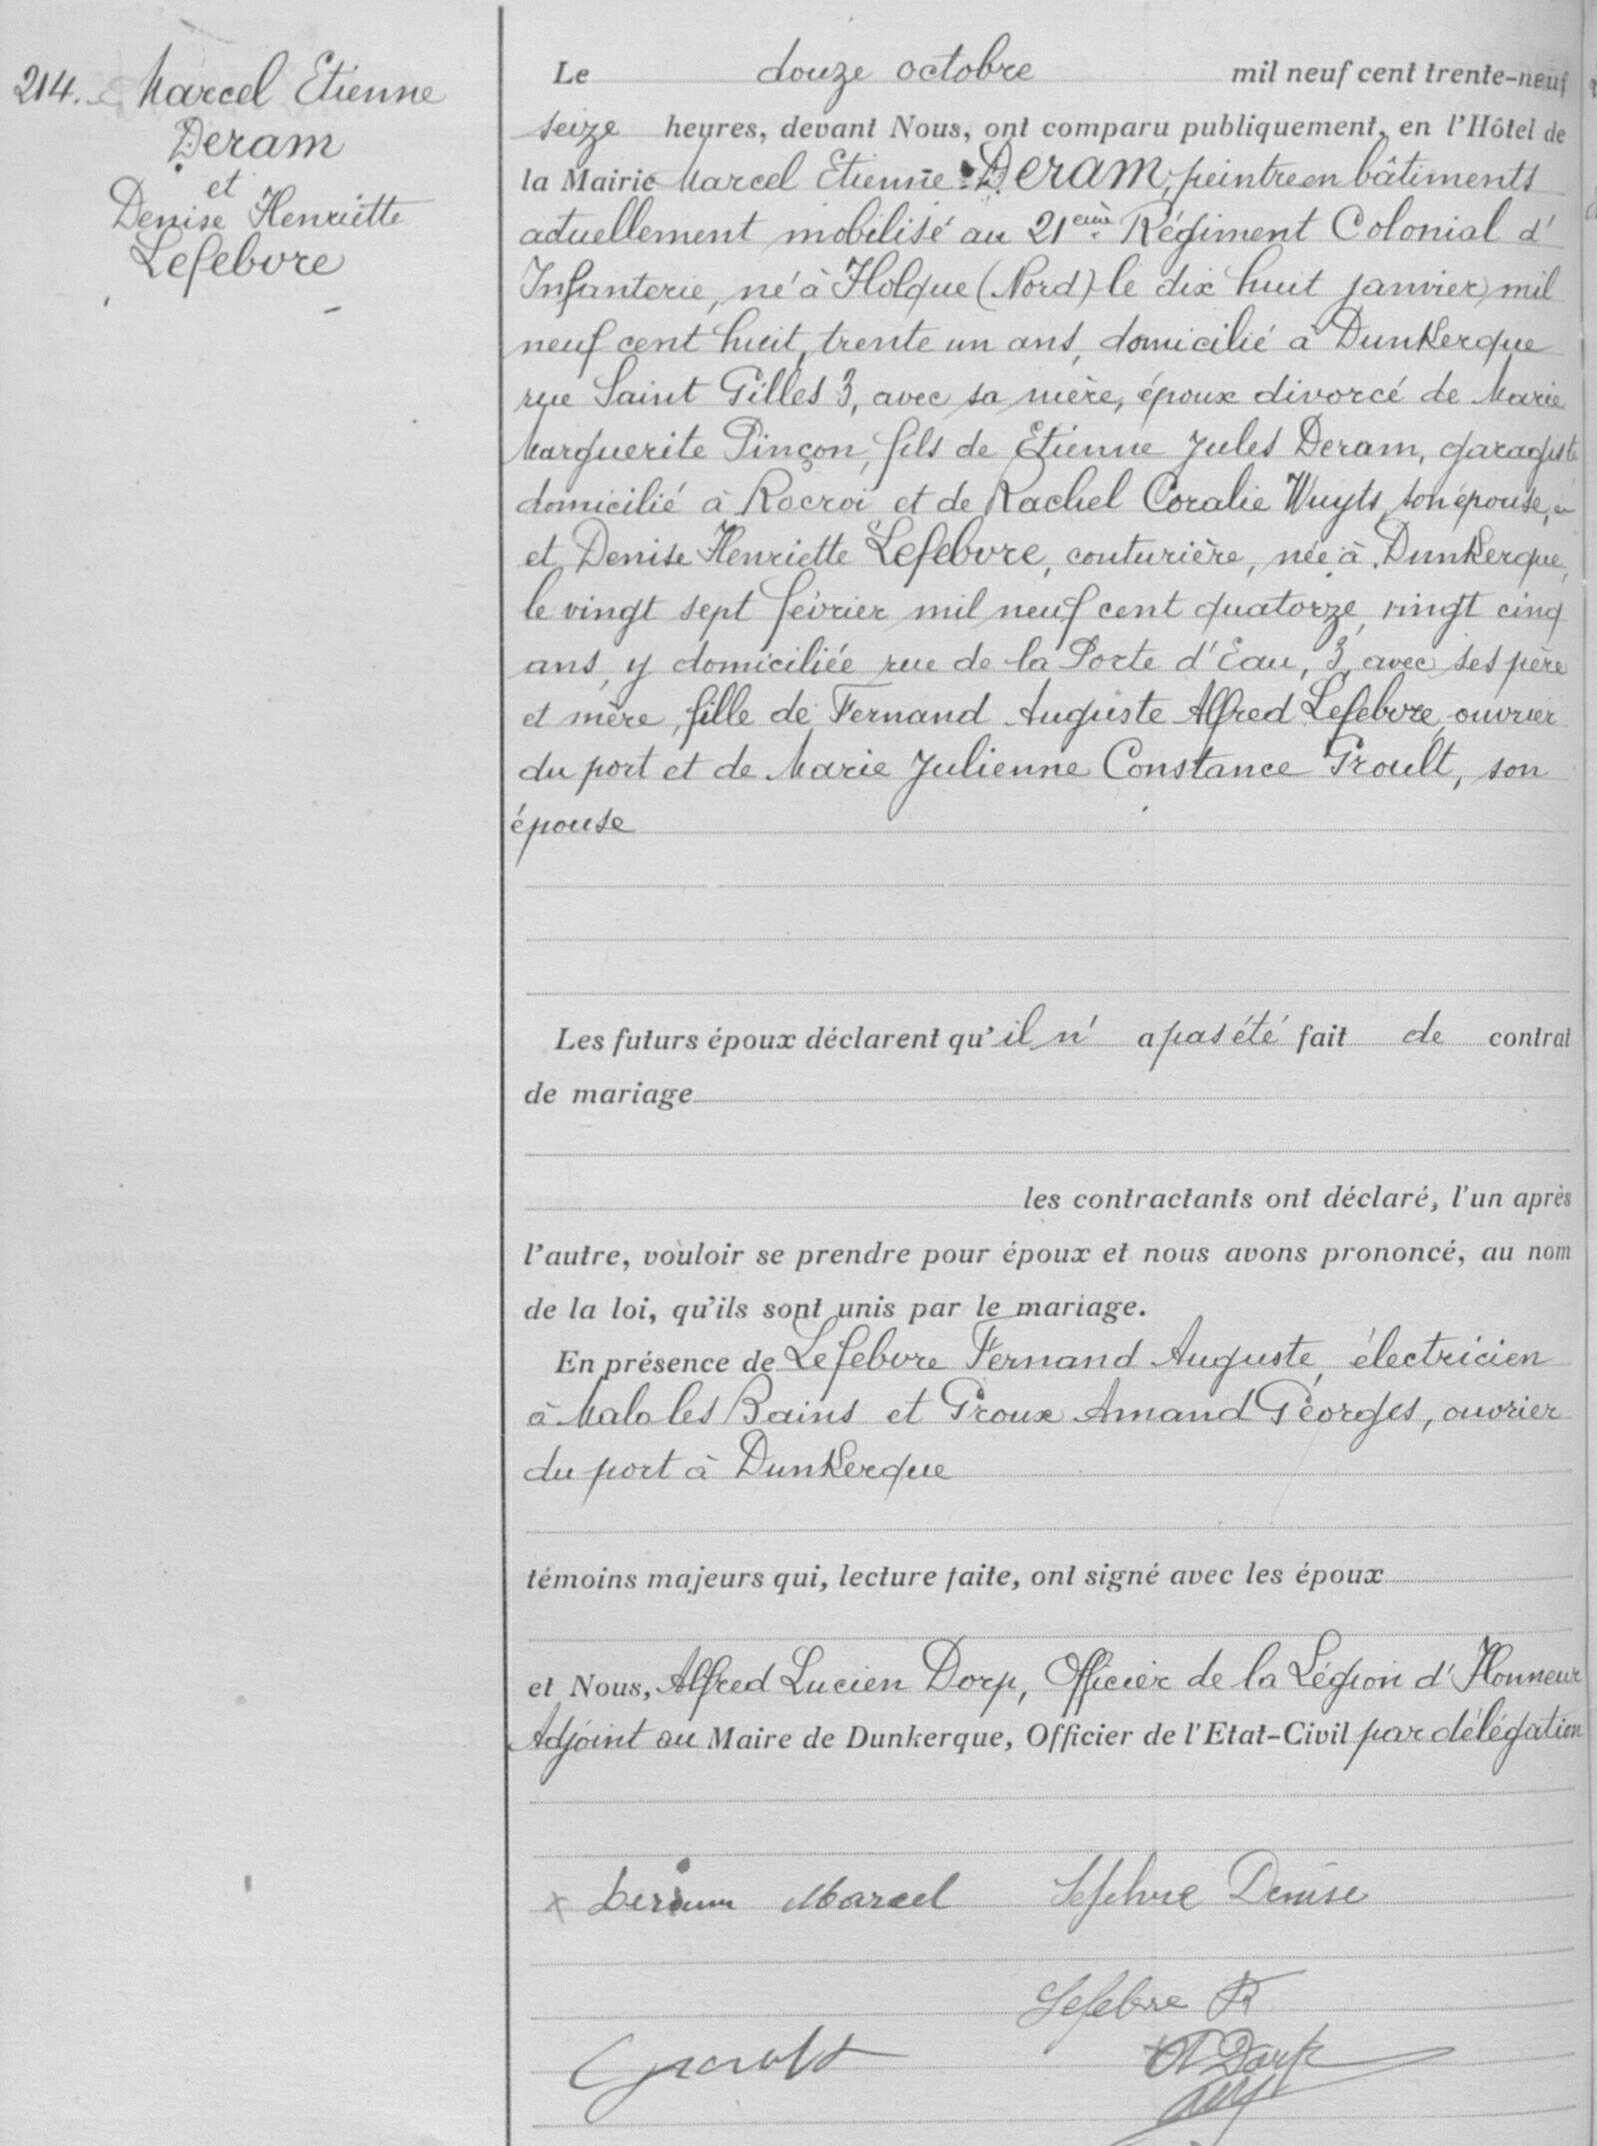 214. Marcel Etienne
Deram
et
Denise Henriette
Lefebvre
Le douze octobre mil neuf cent trente-neuf
seize heures, devant Nous, ont comparu publiquement, en l'Hôtel de
la Mairie Marcel Etienne Deram, peintre en bâtiments
actuellement mobilisé au 21ème Régiment Colonial d'
Infanterie, né à Holque (Nord) le dix huit janvier mil
neuf cent huit, trente un ans, domicilié à Dunkerque
rue Saint Gilles 3, avec sa mère, époux divorcé de Marie
Marguerite Pinçon, fils de Etienne Jules Deram, garagiste
domicilié à Rocroi et de Rachel Coralie Wuyts, son épouse,
et Denise Henriette Lefebvre, couturière, née à Dunkerque,
le vingt sept février mil neuf cent quatorze, vingt cinq
ans, y domiciliée rue de la Porte d'Eau, 3, avec ses père
et mère, fille de Fernand Auguste Alfred Lefebvre, ouvrier
du port et de Marie Julienne Constance Groult, son
épouse
Les futurs époux déclarent qu'il n' a pas été fait de contrat
de mariage
les contractants ont déclaré, l'un après
l'autre, vouloir se prendre pour époux et nous avons prononcé, au nom
de la loi, qu'ils sont unis par le mariage.
En présence de Lefebvre Fernand Auguste, électricien
à Malo les Bains et Groux Amand Georges, ouvrier
du port à Dunkerque
témoins majeurs qui, lecture faite, ont signé avec les époux
et Nous, Alfred Lucien Dorp, Officier de la Légion d'Honneur
Adjoint au Maire de Dunkerque, Officier de l'Etat-Civil par délégation
x Deram Marcel Lefebvre Denise
Lefebvre F
A Dorp